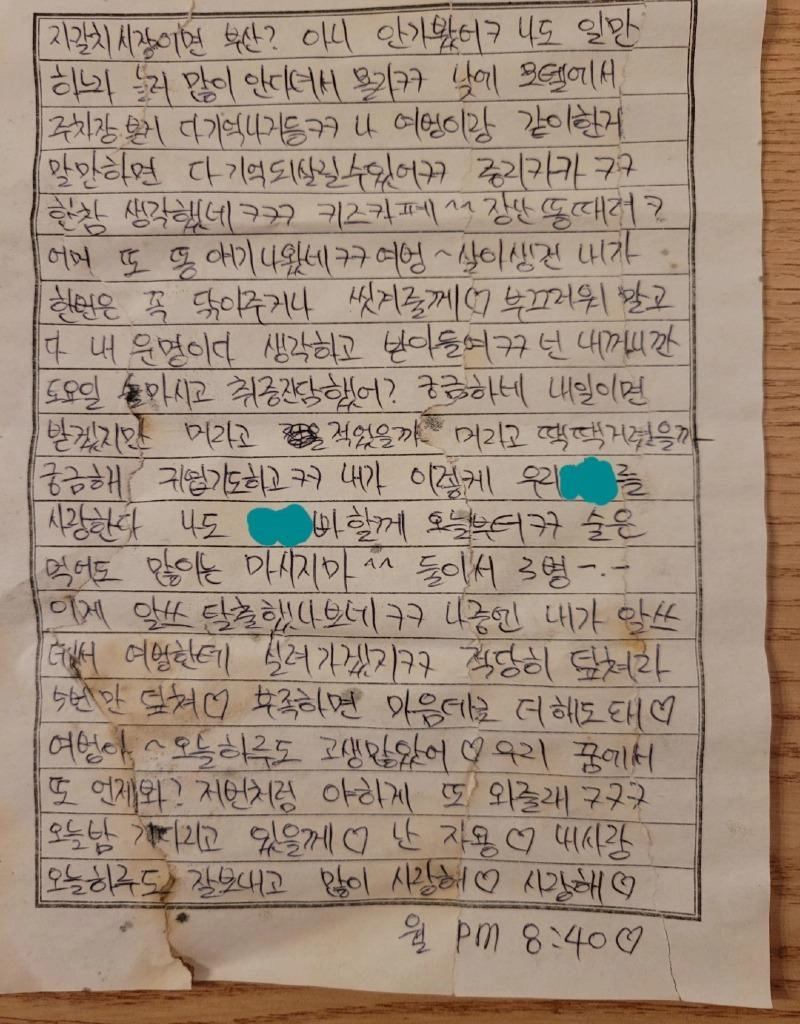 자갈치 시장이면 부산? 아니 안가봤어ㅋ 나도 일만
하느라 놀러 많이 안다녀서 몰라ㅋㅋ 낮에 모텔에서
주차장 본거 다기억나거등ㅋㅋ 나 여벙이랑 같이한거
말만하면 다 기억되살릴수있어ㅋㅋ 중리카카 ㅋㅋ
한참 생각했네 ㅋㅋㅋ 키즈카페^^ 장산 똥때려?
어머 또 똥 얘기나왔네ㅋㅋ 여벙~살아생전 내가
한번은 꼭 닦아주거나 씻겨줄께♡ 부끄러워 말고
다 내 운명이다 생각하고 받아들여ㅋㅋ 넌 내꺼니깐
토요일 술마시고 취중진담했어? 궁금하네 내일이면
받겠지만 머라고 적었을까 머라고 떽떽거렸을까
궁금해 귀엽기도하고ㅋㅋ 내가 이렇게 우리 를
사랑한다 나도 바할께 오늘부터ㅋㅋ 술은
먹어도 많이는 마시지마^^ 둘이서 3병-.-
이제 알쓰 탈출했나보네ㅋㅋ 나중엔 내가 알쓰
되서 여벙한테 실려가겠지ㅋㅋ 적당히 덮쳐라
5번만 덮쳐♡ 부족하면 마음데로 더해도돼♡
여벙아~오늘하루도 고생많았어♡ 우리 꿈에서
또 언제와? 저번처럼 야하게 또 와줄래 ㅋㅋㅋ
오늘밤 기다리고 있을께♡ 난 자용♡ 내사랑
오늘하루도 잘보내고 많이 사랑해♡ 사랑해♡
월 pm 8:40♡